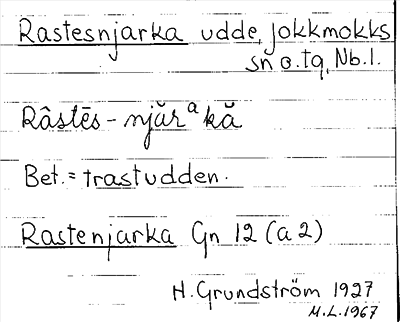 Rastesnjarka udde, Jokkmokks
sn o. tg, Nb. l.
Râstēs-njărᵃkă
Bet. = trastudden.
Rastenjarka Gn 12 (a2)
H. Grundström 1927
M.L. 1967